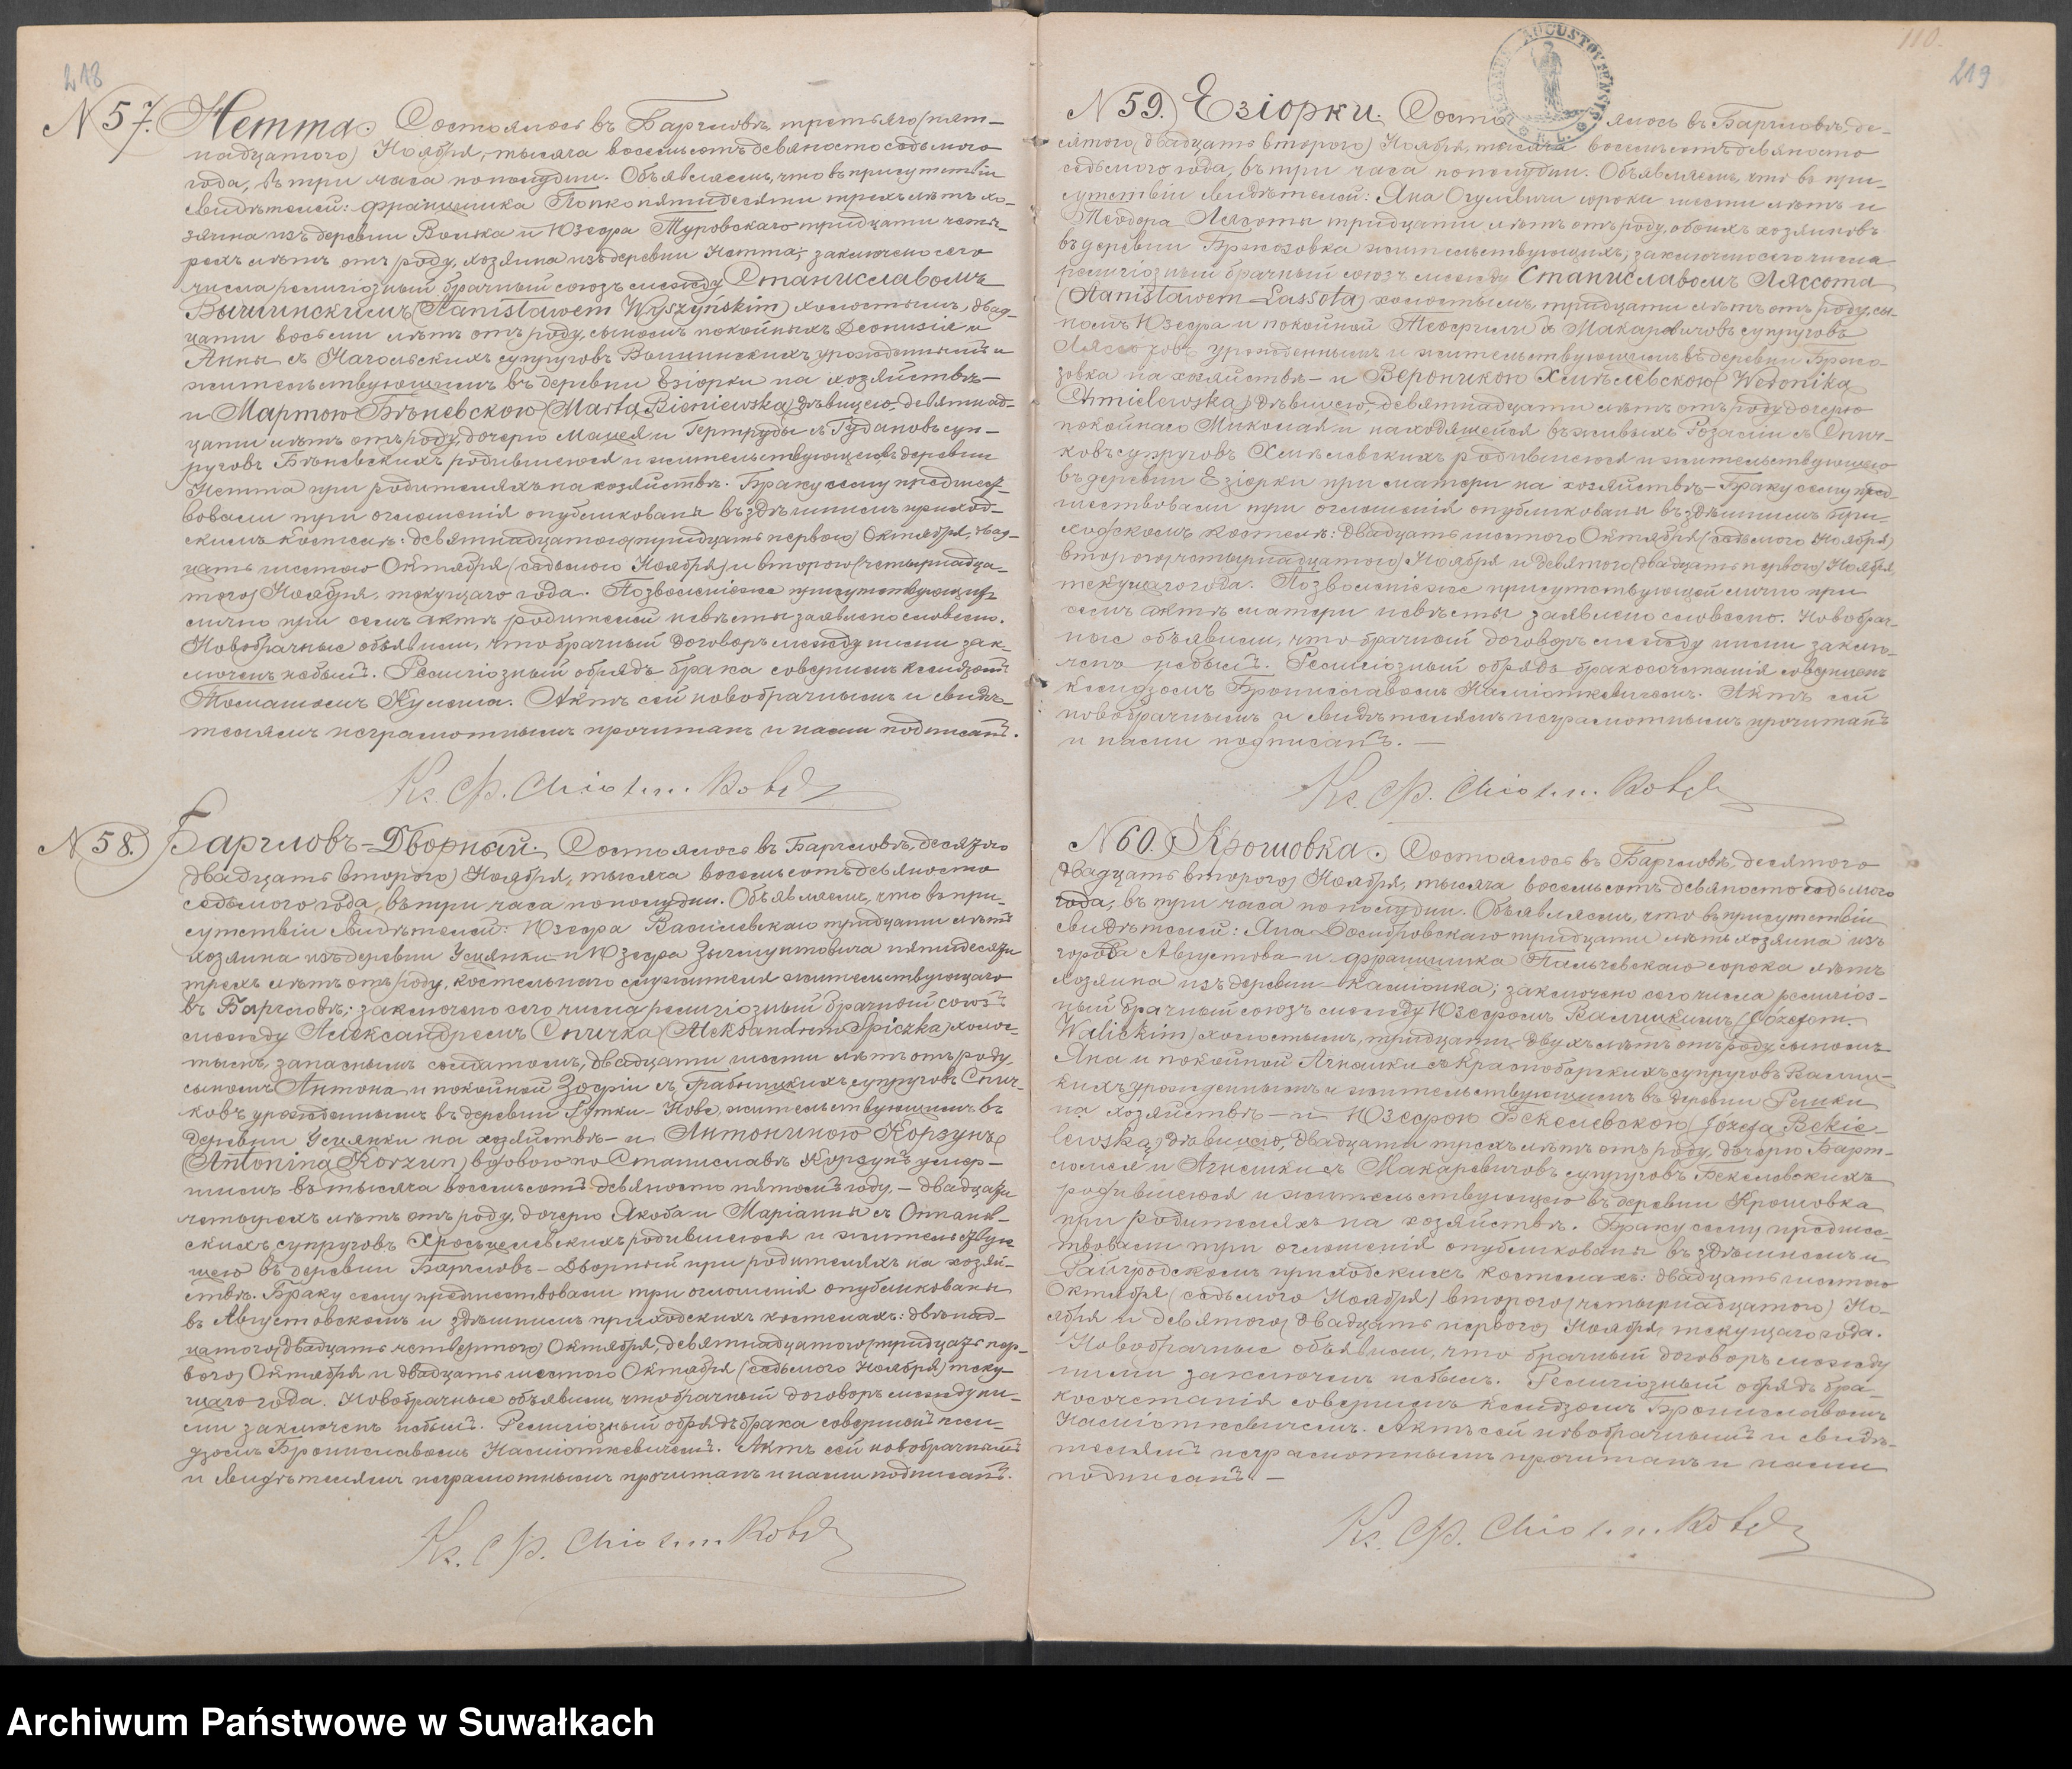 218
N 57. Нетта. Состоялось въ Баргловѣ, третьяго (пят-
надцатого) Ноября, тысяча восемьсотъ девяносто седьмого
года, въ три часа пополудни. Объявляемъ, что въ присутствіи
свидѣтелей: Францишка Попко пятидесяти трехъ лѣтъ хо-
зяина изъ деревни Волька и Юзефа Туровскаго тридцати четы-
рехъ лѣтъ отъ роду, хозяина изъ деревни Нетта; заключено сего
числа религіозный брачный союзъ между Станиславомъ
Вышинскимъ (Stanisławem Wyszyńskim) холостымъ, двад-
цати восьми лѣтъ отъ роду, сыномъ покойныхъ Деонизія и
Анны съ супруговъ Вышинскихъ урожденнымъ и
жительствующимъ въ деревни Езіорки на хозяйствѣ-
и Мартою Бѣневскою (Marta Bieniewska) дѣвицею, девятнад-
цати лѣтъ отъ роду, дочерю Мацея и Гертруды съ Гудановъ суп-
руговъ Бѣневскихъ родившеюся и жительствующею въ деревни
Нетта при родителяхъ на хозяйствѣ. Браку сему предшест-
вовали три оглошенія опубликованы въ здѣшнемъ приход-
скимъ костелѣ: девятнадцатого (тридцать первого) Октября, двад-
цать шестого Октября (седьмого Ноября) и второго (четырнадца-
того) Ноября, текущаго года. Позволеніе присутствующихъ
лично при семъ актѣ родителей невѣсты заявлено словесно.
Новобрачные объявили, что брачный договоръ между ними зак-
люченъ небылъ. Религіозный обрядъ брака совершенъ ксендзомъ
Томашемъ Кулеша. Актъ сей новобрачнымъ и свидѣ-
телямъ неграмотнымъ прочитанъ и нами подписанъ.
N 58. Баргловъ-Дворный. Состоялось въ Баргловѣ, десятого
(двадцать второго) Ноября, тысяча восемьсотъ девяносто
седьмого года, въ три часа пополудни. Объявляемъ, что въ при-
сутствіи свидѣтелей: Юзефа Василевскаго тридцати лѣтъ
хозяина изъ деревни Усцянки и Юзефа Зыгмунтовича пятидесяти
трехъ лѣтъ отъ роду, костельнаго служителя жительствующаго
въ Баргловѣ; заключено сего числа религіозный брачный союзъ
между Александремъ Спичка (Aleksandrem Spiczka) холос-
тымъ, запаснымъ солдатомъ, двадцати шести лѣтъ отъ роду,
сыномъ Антона и покойной Зофіи съ Грабницкихъ супруговъ Спич-
ковъ урожденнымъ въ деревни Гутки-Нове, жительствующимъ въ
деревни Усцянки на хозяйствѣ- и Антониною Корзунъ
(Antonina Korzun) вдовою по Станиславѣ Корзунъ умер-
шимъ въ тысяча восемьсотъ девяносто пятомъ году, - двадцати
четырехъ лѣтъ отъ роду, дочерю Якоба и Маріанны съ
скихъ супруговъ Хросцелевскихъ родившеюся и жительствую-
щею въ деревни Баргловъ-Дворный при родителяхъ на хозяй-
ствѣ. Браку сему предшествовали три оглошенія опубликованы
въ Августовскомъ и здѣшнимъ приходскихъ костелахъ: двѣнад-
цатого (двадцать четвертого) Октября, девятнадцатого (тридцать пер-
вого) Октября и двадцать шестого Октября (седьмого Ноября) теку-
щаго года. Новобрачные объявили, что брачный договоръ между ни-
ми заключенъ небылъ. Религіозный обрядъ брака совершонъ ксен-
дзомъ Брониславомъ Насміонткевичемъ. Актъ сей новобрачнымъ
и свидѣтелямъ неграмотнымъ прочитанъ и нами подписанъ.
110.
219
N 59. Езіорки. Состо ялось въ Баргловѣ, де-
сятого (двадцать второго) Ноября, тысяча восемьсотъ девяносто
седьмого года, въ три часа пополудни. Объявляемъ, что въ при-
сутствіи свидѣтелей: Яна сорока шести лѣтъ и
Теодора Лясоты тридцати лѣтъ отъ роду, обоихъ хозяиновъ
въ деревни Бржозовка жительствующихъ, заключено сего числа
религіозный брачный союзъ между Станиславомъ Ляссота
(Stanisławem Lassota) холостымъ, тридцати лѣтъ отъ роду, сы-
номъ Юзефа и покойной Теофили съ Макаревичовъ супруговъ
урожденнымъ и жительствующимъ въ деревни Бржо-
зовка на хозяйствѣ- и Вероникою Хмѣлевскою (Weronika
Chmielewska) дѣвицею, девятнадцати лѣтъ отъ роду дочерю
покойнаго Миколая и находящейся въ живыхъ Розаліи съ Спич-
ковъ супруговъ Хмѣлевскихъ родившеюся и жительствующею
въ деревни Езіорки при матери на хозяйствѣ- Браку сему пред-
шествовали три оглошенія опубликованы въ здѣшнимъ при-
ходскомъ костелѣ: двадцать шестого Октября (седьмого Ноября)
второго (четырнадцатого) Ноября и девятого (двадцать первого) Ноября,
текущаго года. Позволеніе присутствующей лично при
семъ актѣ матери невѣсты заявлено словесно. Новобрач-
ные объявили, что брачный договоръ между ними заклю-
ченъ небылъ. Религіозный обрядъ бракосочетанія совершенъ
ксендзомъ Брониславомъ Насміонткевичемъ. Актъ сей
новобрачнымъ и свидѣтелямъ неграмотнымъ прочитанъ
и нами подписанъ. -
N 60. Крошовка. Состоялось въ Баргловѣ, десятого
(двадцать второго) Ноября, тысяча восемьсотъ девяносто седьмого
года, въ три часа пополудни. Объявляемъ, что въ присутствіи
свидѣтелей: Яна Домбровскаго тридцати лѣтъ хозяина изъ
города Августова и Францишка Пальчевскаго сорока лѣтъ
хозяина изъ деревни Касміонка; заключено сего числа религіоз-
ный брачный союзъ между Юзефомъ Валицкимъ (Józefem
Walickim) холостымъ, тридцати двухъ лѣтъ отъ роду, сыномъ
Яна и покойной Агнешки съ Красноборскихъ супруговъ Валиц-
кихъ урожденнымъ и жительствующимъ въ деревни Решки
на хозяйствѣ- и Юзефою Бекелевскою (Józefa Bekie-
lewska) дѣвицею, двадцати трехъ лѣтъ отъ роду, дочерю Барт-
ломея и Агнешки съ Макаревичовъ супруговъ Бекелевскихъ
родившеюся и жительствующею въ деревни Крошовка
при родителяхъ на хозяйствѣ. Браку сему предшес-
твовали три оглошенія опубликованы въ здѣшнемъ и
Райгродскомъ приходскихъ костелахъ: двадцать шестого
Октября (седьмого Ноября) второго (четырнадцатого) Но-
ября и девятого (двадцать первого) Ноября, текущаго года.
Новобрачные объявили, что брачный договоръ между
ними заключенъ небылъ. Религіозный обрядъ бра-
косочетанія совершенъ ксендзомъ Брониславомъ
Насміонткевичемъ. Актъ сей новобрачнымъ и свидѣ-
телямъ неграмотнымъ прочитанъ и нами
подписанъ. -
Archiwum Państwowe w Suwałkach